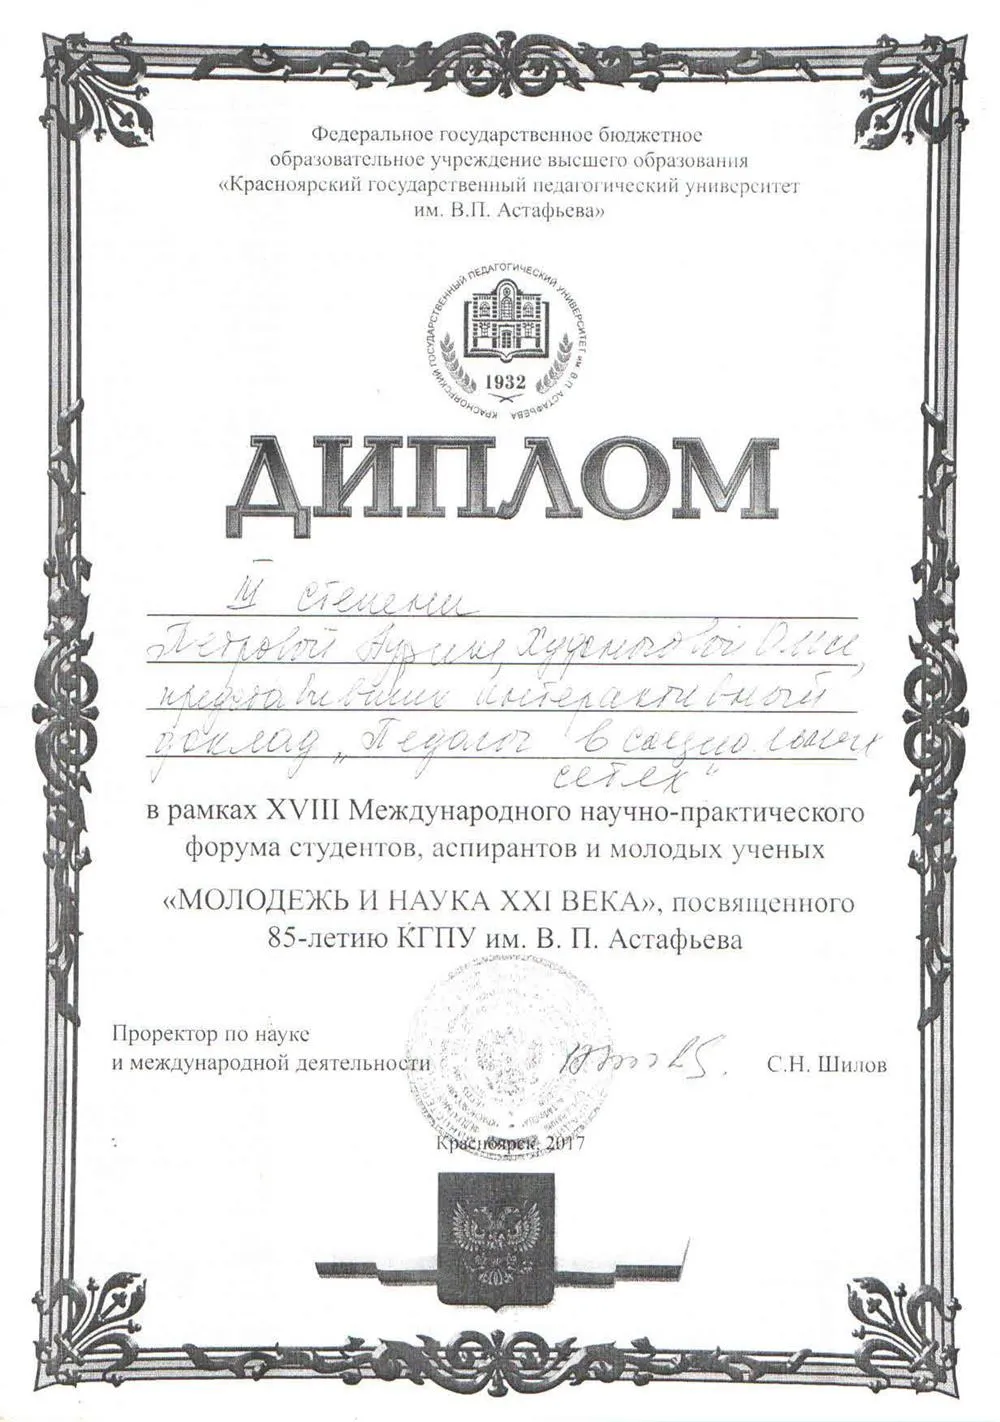 Федеральное государственное бюджетное
образовательное учреждение высшего образования
«Красноярский государственный педагогический университет
им. В.П. Астафьева»
КРАСНОЯРСКИЙ ГОСУДАРСТВЕННЫЙ ПЕДАГОГИЧЕСКИЙ УНИВЕРСИТЕТ ИМ. В.П. АСТАФЬЕВА
1932
ДИПЛОМ
III степени
Петровой Худоноговой
представившим интерактивный
доклад „Педагог в социальных
сетях"
в рамках XVIII Международного научно-практического
форума студентов, аспирантов и молодых ученых
«МОЛОДЕЖЬ И НАУКА XXI ВЕКА», посвященного
85-летию КГПУ им. В. П. Астафьева
Проректор по науке
и международной деятельности
С.Н. Шилов
Красноярск, 2017